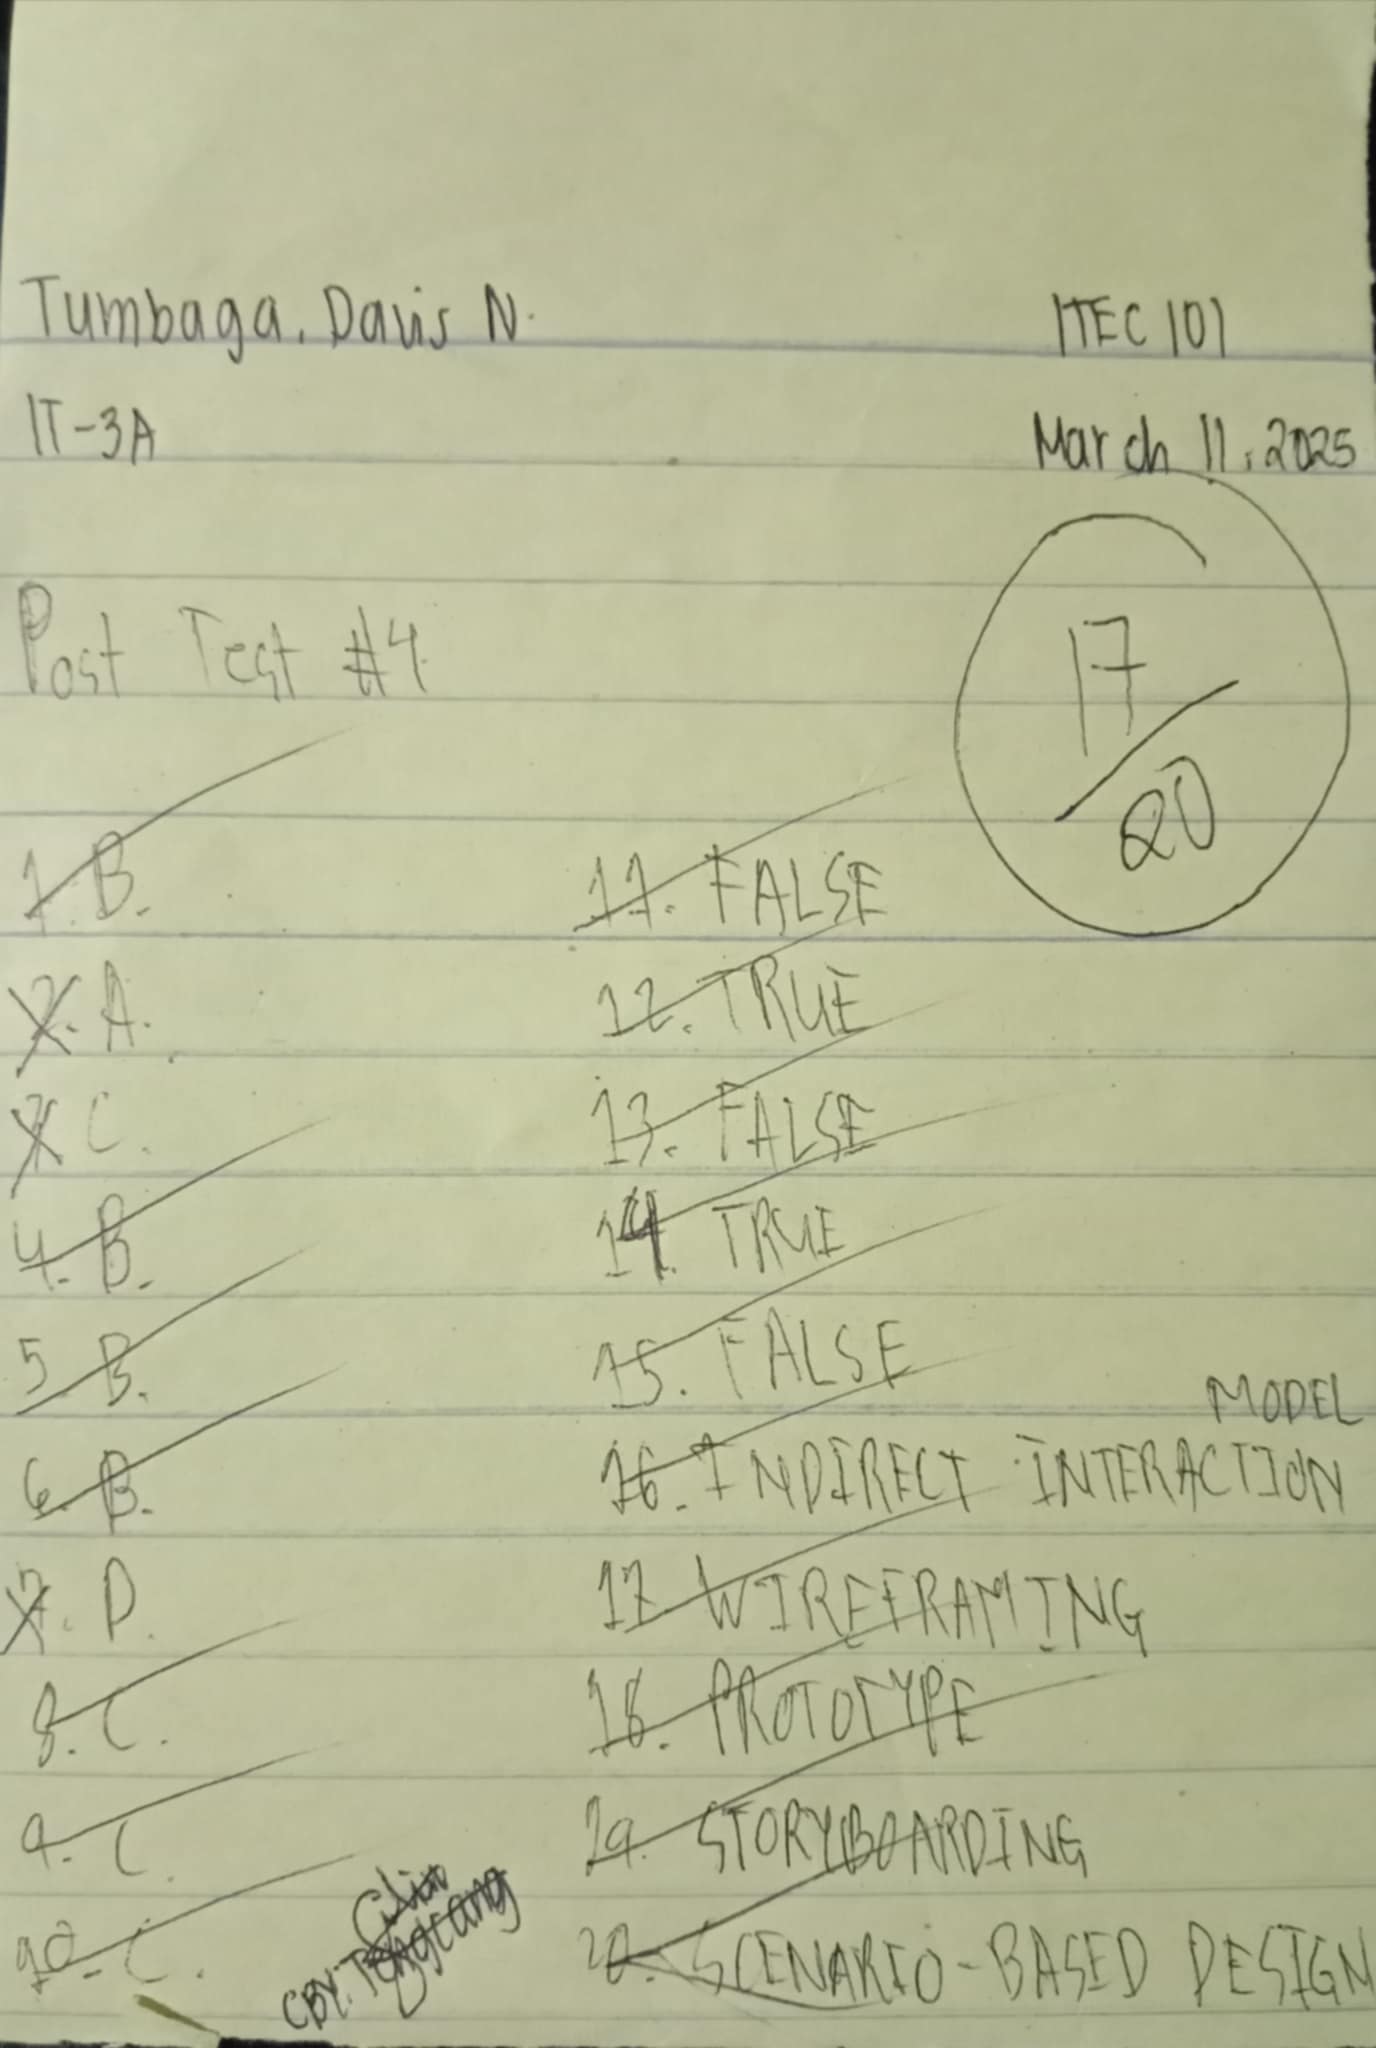 Tumbaga, Davis N.
ITEC 101
IT-3A
March 11, 2025
Post Test #4
17
20
1. B.
2. A.
3. C.
4. B.
5. B.
6. B.
7. D.
8. C.
9. C.
10. C.
CBY:
11. FALSE
12. TRUE
13. FALSE
14. TRUE
15. FALSE
MODEL
16. INDIRECT INTERACTION
17. WIREFRAMING
18. PROTOTYPE
19. STORYBOARDING
20. SCENARIO-BASED DESIGN